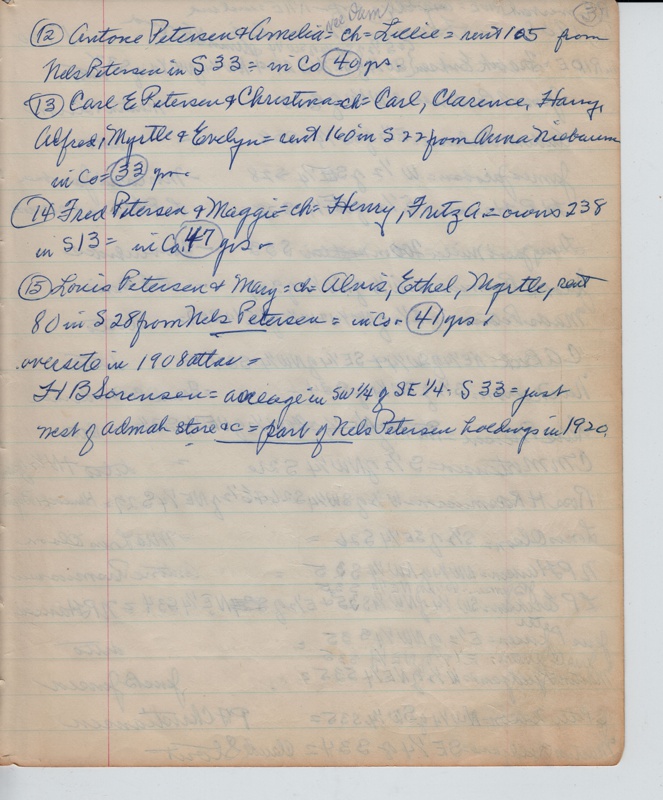 31
(12) Antone Petersen & Amelia = ch = Lillie = rent 105 from
Nels Petersen in S 33 = in Co (40) yrs.
(13) Carl E Petersen & Christina = ch = Carl, Clarence, Harry,
Alfred, Myrtle & Evelyn = rent 160 in S 22 from Anna Niebaum
in Co = (33) yrs.
(14) Fred Petersen & Maggie = ch = Henry, Fritz A. = owns 238
in S 13 = in Co. (47) yrs.
(15) Louis Petersen & Mary = ch = Alvis, Ethel, Myrtle, rent
80 in S 28 from Nels Petersen = in Co - (41) yrs.
oversite in 1908 atlas =
H B Sorensen = acreage in SW 1/4 of SE 1/4 - S 33 = just
west of admah store &c = part of Nels Petersen holdings in 1920